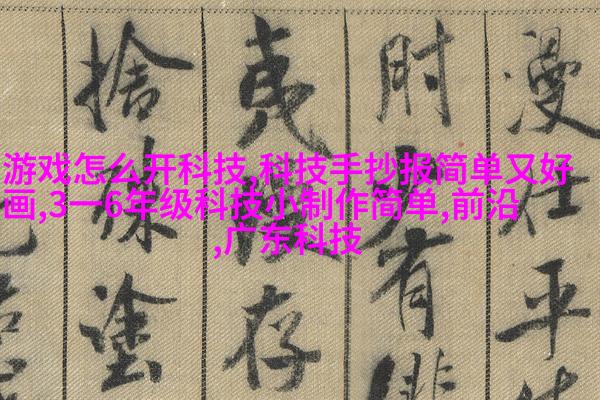 游戏怎么开科技,科技手抄报简单又好
画,3一6年级科技小制作简单,前沿
,广东科技
漫仕平
肘少有俳
夷漫存
捨殊塗